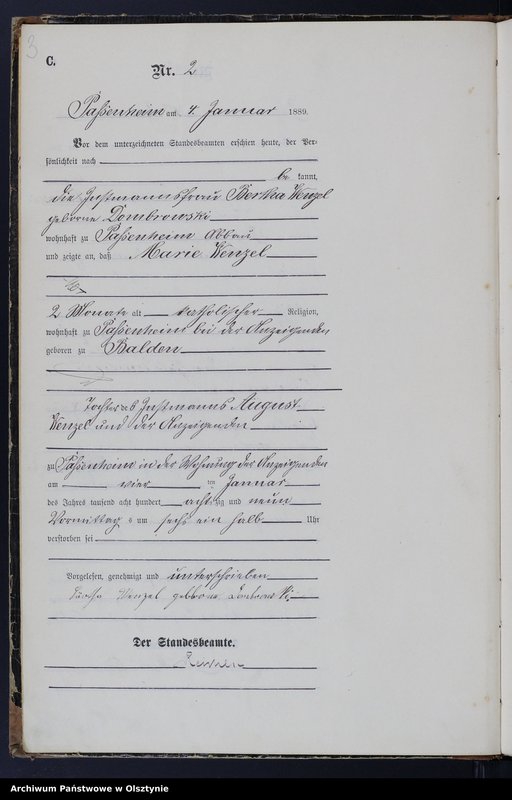 3
C.
Nr. 2
Passenheim am 4. Januar 1889.
Vor dem unterzeichneten Standesbeamten erschien heute, der Per-
sönlichkeit nach
be kannt,
die Instmannsfrau Bertha Wenzel
geborne Dombrowski
wohnhaft zu Passenheim Abbau
und zeigte an, daß Marie Wenzel
2 Monate alt katholischer Religion,
wohnhaft zu Passenheim bei der Anzeigenden
geboren zu Balden
Tochter des Instmanns August
Wenzel und der Anzeigenden
zu Passenheim in der Wohnung der Anzeigenden
am vier ten Januar
des Jahres tausend acht hundert acht zig und neun
Vormittag s um sechs ein halb Uhr
verstorben sei
Vorgelesen, genehmigt und unterschrieben
Bertha Wenzel geborne Dombrowski
Der Standesbeamte.
Archiwum Państwowe w Olsztynie